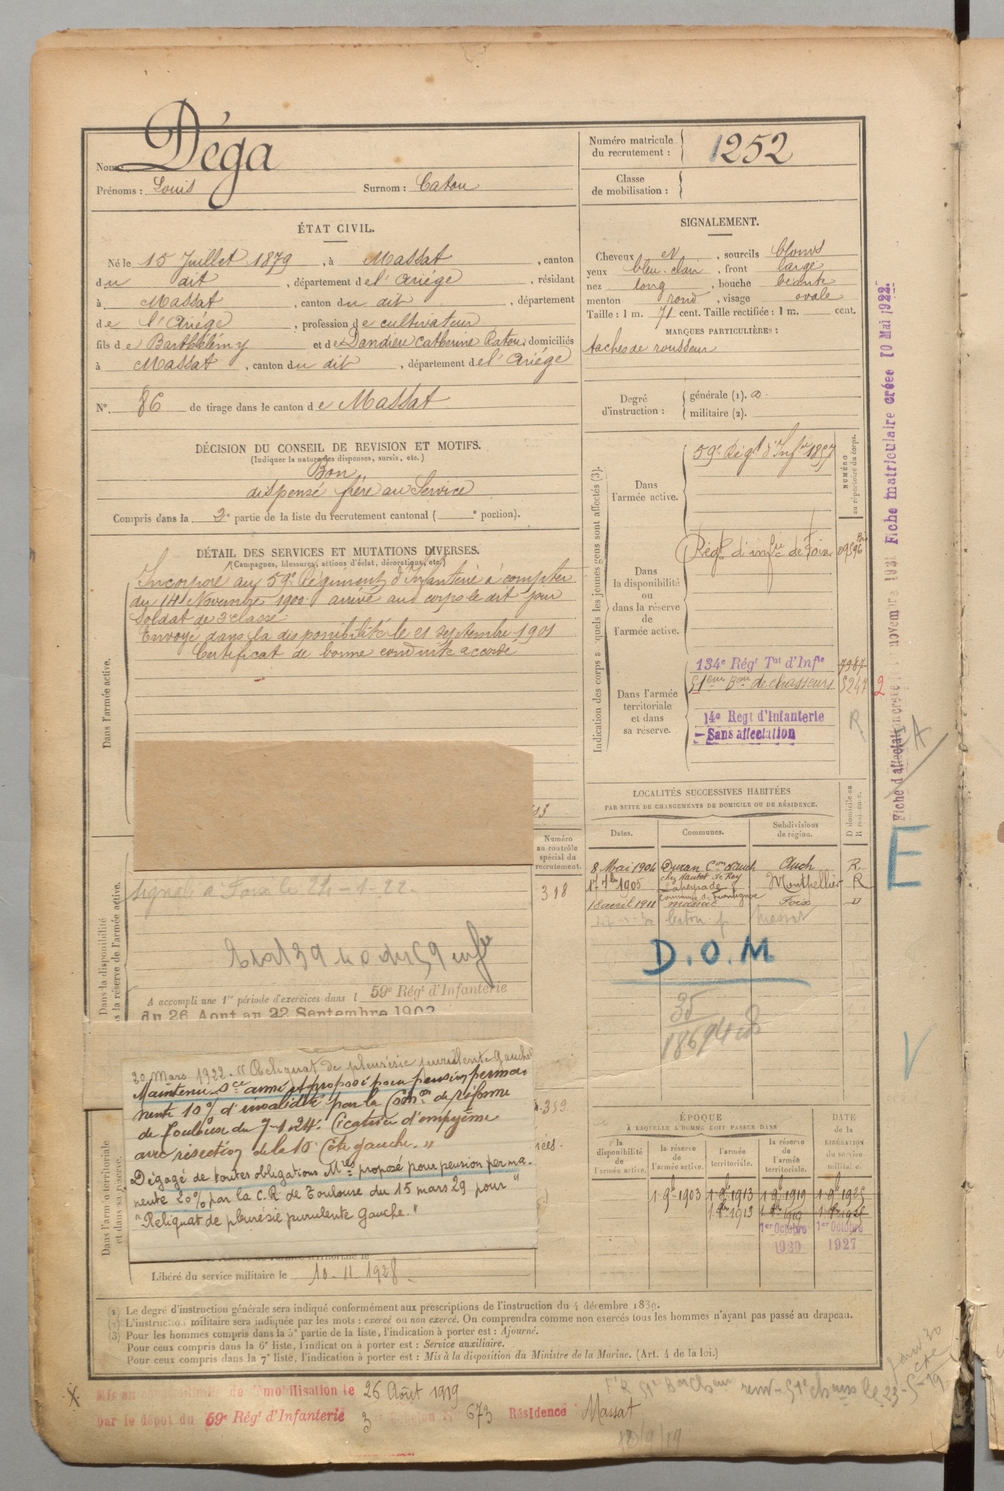 Nom Déga
Prénoms : Louis Surnom : Catou
Numéro matricule du recrutement : 1252
Classe de mobilisation :
ÉTAT CIVIL.
Né le 15 Juillet 1879, à Massat, canton
du dit, département de l'Ariége, résidant
à Massat, canton du dit, département
de l'Ariége, profession de cultivateur
fils de Barthélémy et de Dandieu Catherine Catou, domiciliés
à Massat, canton du dit, département de l'Ariége
N° 86 de tirage dans le canton de Massat
SIGNALEMENT.
Cheveux N, sourcils blonds
yeux bleu-clair, front large
nez long, bouche
menton rond, visage ovale
Taille : 1 m. 71 cent. Taille rectifiée : 1 m. cent.
MARQUES PARTICULIÈRES :
taches de rousseur
Degré d'instruction : générale (1).
militaire (2).
DÉCISION DU CONSEIL DE REVISION ET MOTIFS.
(Indiquer la nature des dispenses, sursis, etc.)
Bon
dispensé frère au Service
Compris dans la 2e partie de la liste du recrutement cantonal ( e portion).
DÉTAIL DES SERVICES ET MUTATIONS DIVERSES.
(Campagnes, blessures, actions d'éclat, décorations, etc.)
Dans l'armée active.
Incorporé au 59e Régiment d'Infanterie à compter
du 14 Novembre 1900 arrivé au corps le dit jour
Soldat de 2e classe
Envoyé dans la disponibilité le 21 septembre 1901
Certificat de bonne conduite accordé
Indication des corps auxquels les jeunes gens sont affectés (3).
NUMÉRO au répertoire du corps.
Dans l'armée active.
59e Régt d'Infie 1857
Dans la disponibilité ou dans la réserve de l'armée active.
Régt d'infie de Foix
Dans l'armée territoriale et dans sa réserve.
134e Régt Tal d'Infie
51eme Bon de chasseurs 5247
14e Regt d'Infanterie
Sans affectation
R
2
Fiche matriculaire créée 10 Mai 1922.
LOCALITÉS SUCCESSIVES HABITÉES
PAR SUITE DE CHANGEMENTS DE DOMICILE OU DE RÉSIDENCE.
Dates. Communes. Subdivisions de région. D domicile ou R résidence.
8 Mai 1904 Duran Con d'Auch Auch R.
1905 Montpellier R
18 avril 1911 Massat Foix D
D.O.M
E
V
Numéro au contrôle spécial du recrutement.
318
Dans la disponibilité
la réserve de l'armée active.
signalé à Foix le 24-1-22.
A accompli une 1re période d'exercices dans l 59e Régt d'Infanterie
du 26 Aout au 22 Septembre 1903
20 Mars 1922. "Reliquat de pleurésie purulente Gauche
Maintenu sce armé et proposé pour pension perma-
nente 10% d'invalidité par la Cson de réforme
de Toulouse du 7-1-24. Cicatrice d'empyème
avec résection de la 10e côte gauche."
Dégagé de toutes obligations Mres proposé pour pension perma-
nente 20% par la C.R de Toulouse du 15 mars 29 pour "
"Reliquat de pleurésie purulente Gauche."
Dans l'armée territoriale et dans sa réserve.
Libéré du service militaire le 10-11-1928.
ÉPOQUE
À LAQUELLE L'HOMME DOIT PASSER DANS
la disponibilité de l'armée active. la réserve de l'armée active. l'armée territoriale. la réserve de l'armée territoriale. DATE de la LIBÉRATION du service militaire.
1 9bre 1903 1 9bre 1913 1 9bre 1919 1 9bre 1925
1er Octobre 1er Octobre
1927
(1) Le degré d'instruction générale sera indiqué conformément aux prescriptions de l'instruction du 4 décembre 1889.
(2) L'instruction militaire sera indiquée par les mots : exercé ou non exercé. On comprendra comme non exercés tous les hommes n'ayant pas passé au drapeau.
(3) Pour les hommes compris dans la 5e partie de la liste, l'indication à porter est : Ajourné.
Pour ceux compris dans la 6e liste, l'indication à porter est : Service auxiliaire.
Pour ceux compris dans la 7e liste, l'indication à porter est : Mis à la disposition du Ministre de la Marine. (Art. 4 de la loi.)
Mis en congé illimité de démobilisation le 26 Août 1919
par le dépôt du 59e Régt d'Infanterie 3e échelon N° 673 Résidence Massat
18/9/19